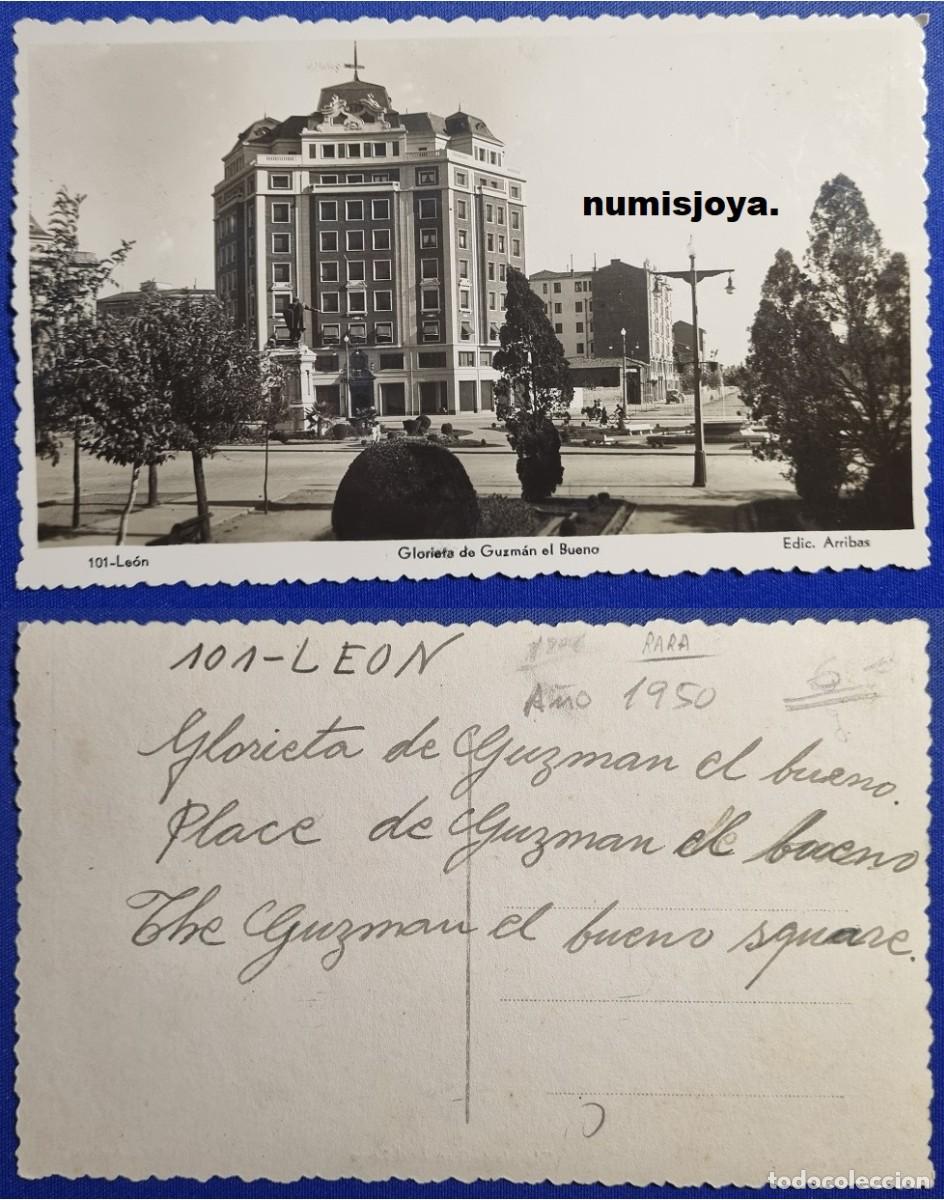 numisjoya.
101-León
Glorieta de Guzmán el Bueno
Edic. Arribas
101-LEON
RARA
Año 1950
Glorieta de Guzman el bueno.
Place de Guzman el bueno
The Guzman el bueno square.
todocoleccion